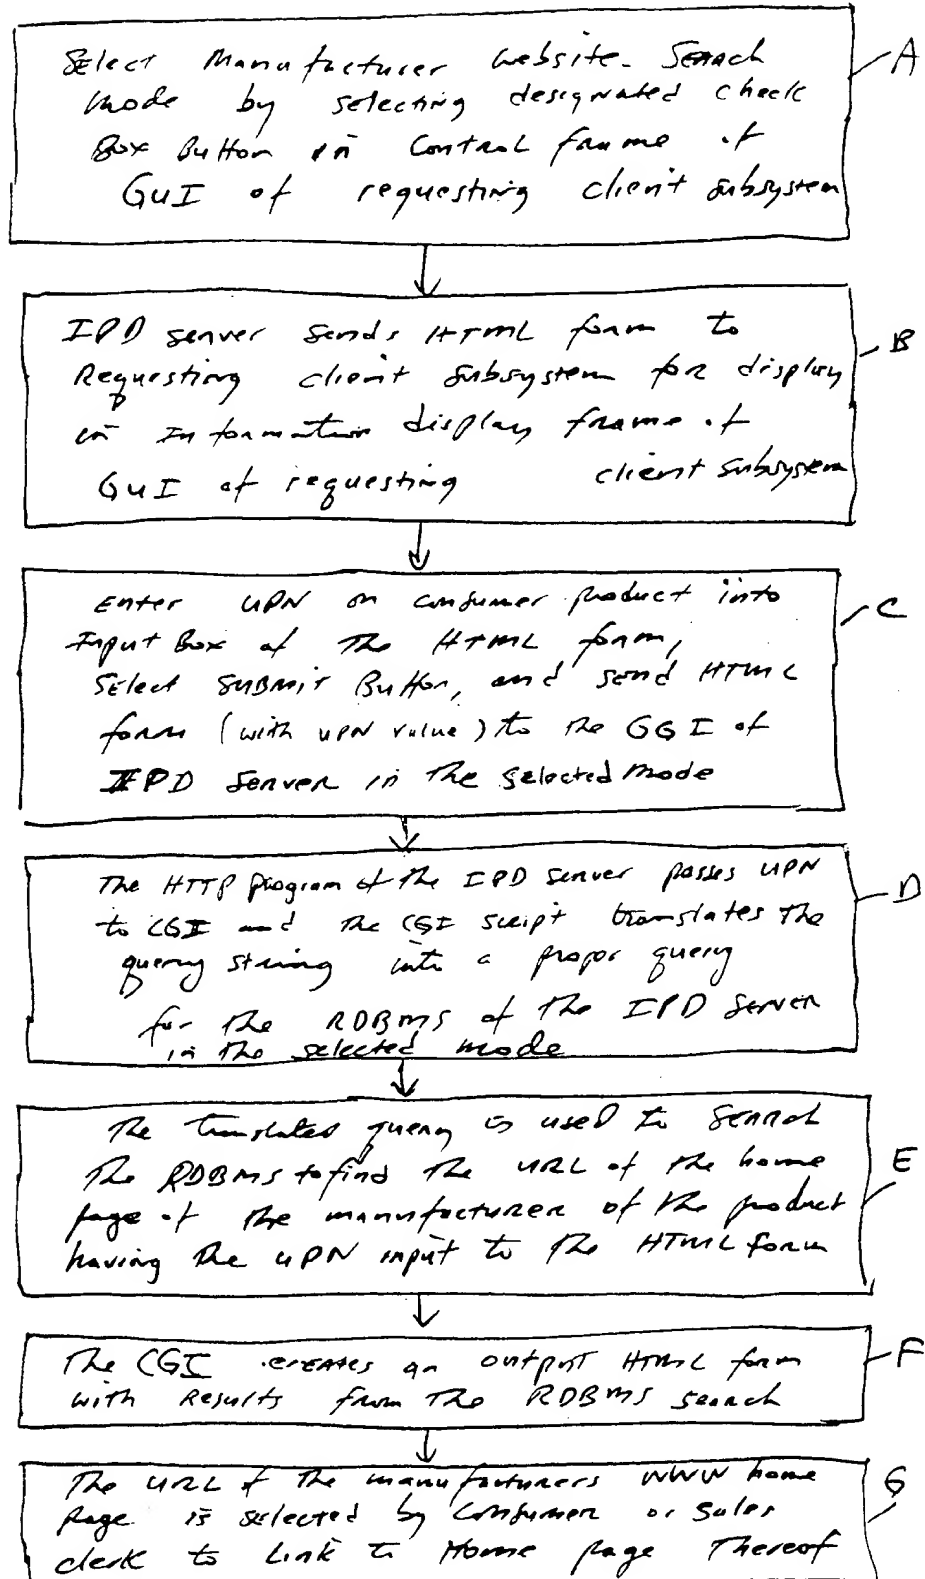 Select Manufacturer Website Search
Mode by selecting designated check
Box Button in Control frame of
GUI of requesting client subsystem
A
IPD server sends HTML form to
Requesting client subsystem for display
in Information display frame of
GUI of requesting client subsystem
B
Enter UPN on consumer product into
Input Box of The HTML form,
Select SUBMIT Button, and send HTML
form (with UPN value) to the GGI of
IPD Server in the selected mode
C
The HTTP program of the IPD Server passes UPN
to CGI and the CGI script translates the
query string into a propor query
for the RDBMS of the IPD Server
in the selected mode
D
The translated query is used to Search
The RDBMS to find The URL of the home
page of the manufacturer of the product
having the UPN input to the HTML form
E
The CGI creates an output HTML form
with Results from The RDBMS search
F
The URL of the manufacturers WWW home
Page is selected by Consumer or Sales
clerk to Link to Home page Thereof
G